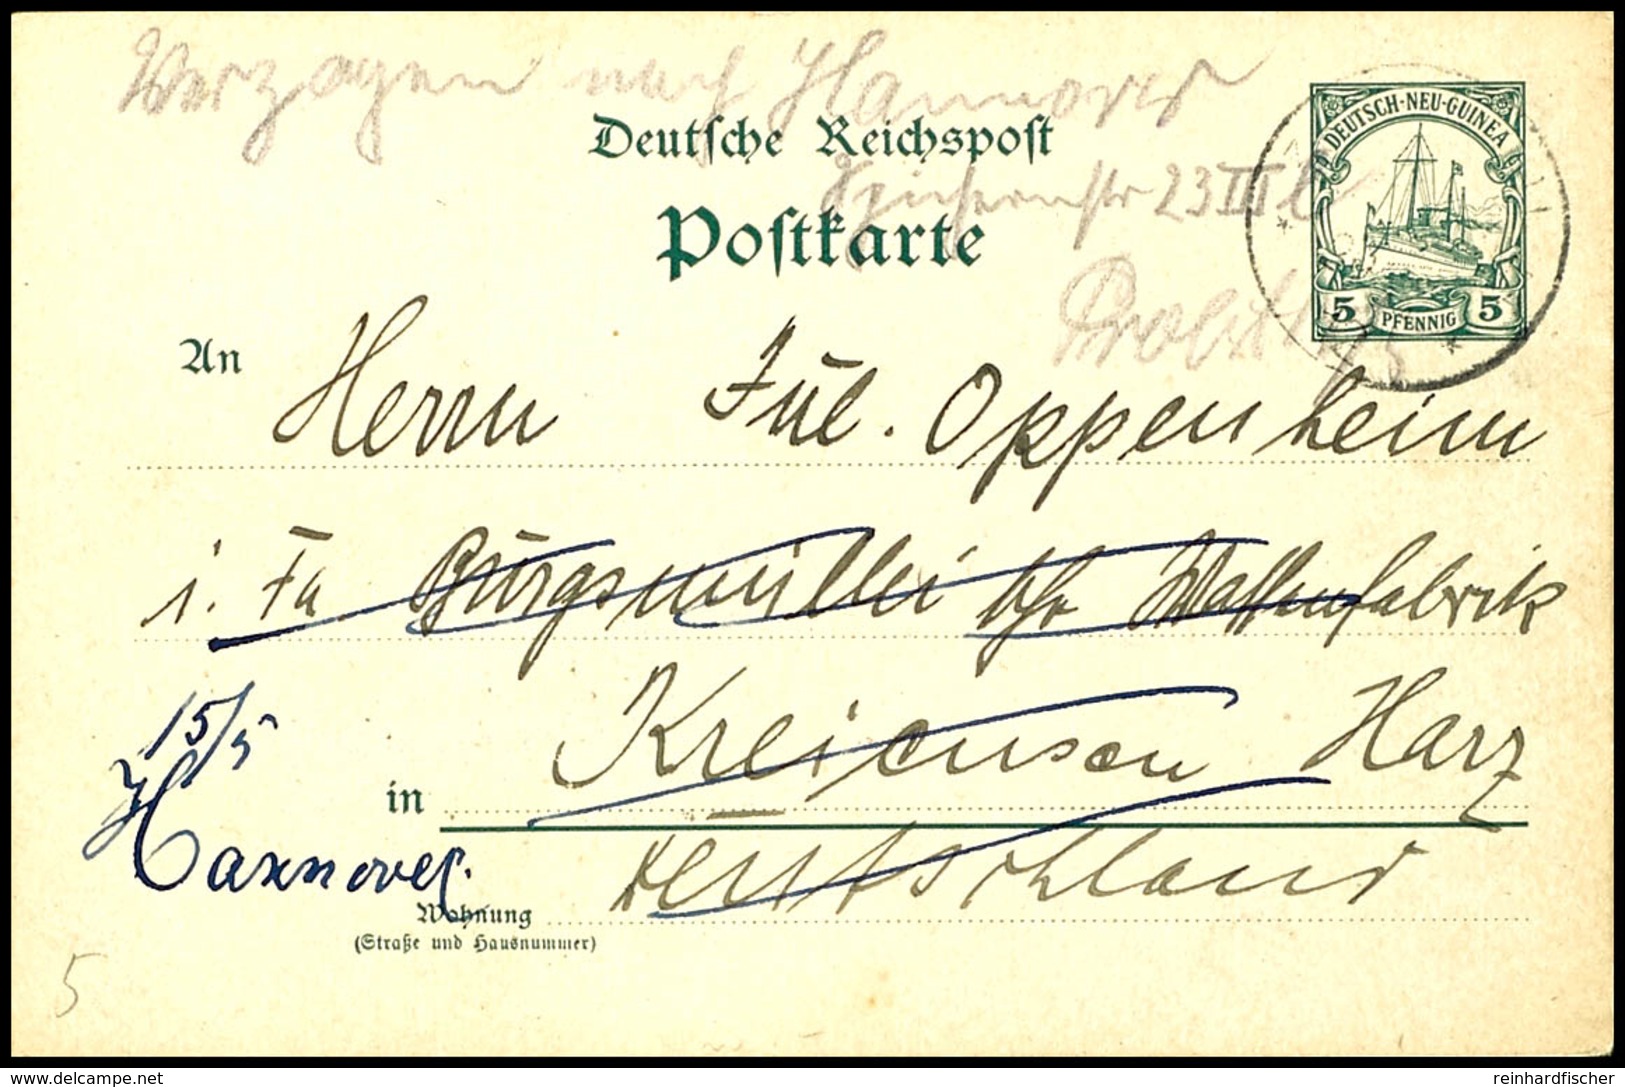 Verzogen nach Hannover
Deutsche Reichspost
23 III l
Postkarte
DEUTSCH-NEU-GUINEA
5 PFENNIG 5
An Herrn Jul. Oppenheim
i. Fa Burgsmüller Waffenfabrik
Kreiensen Harz
in
Deutschland
15/5
Hannover.
Wohnung
(Straße und Hausnummer)
5
www.delcampe.net
reinhardfischer